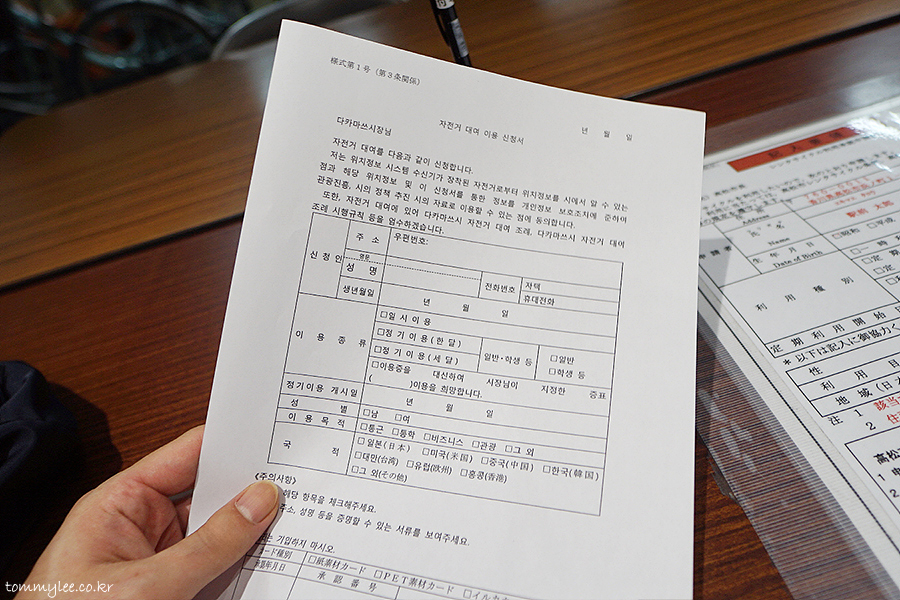 様式第1号（第3条関係）
자전거 대여 이용 신청서
년 월 일
다카마쓰시장님
자전거 대여를 다음과 같이 신청합니다.
저는 위치정보 시스템 수신기가 장착된 자전거로부터 위치정보를 시에서 알 수 있는
점과 해당 위치정보 및 이 신청서를 통한 정보를 개인정보 보호조치에 준하여
관광진흥, 시의 정책 추진 시의 자료로 이용할 수 있는 점에 동의합니다.
또한, 자전거 대여에 있어 다카마쓰시 자전거 대여 조례, 다카마쓰시 자전거 대여
조례 시행규칙 등을 엄수하겠습니다.
신청인
주 소
우편번호:
영문
성 명
전화번호
자택
휴대전화
생년월일
년 월 일
이 용 종 류
□일 시 이 용
□정 기 이 용 (한 달)
□정 기 이 용 (세 달)
일반·학생 등
□일반
□학생 등
□이용증을 대신하여 시장님이 지정한 증표
( )이용을 희망합니다.
정기이용 개시일
년 월 일
성 별
□남 □여
이 용 목 적
□통근 □통학 □비즈니스 □관광 □그 외
국 적
□일본(日本) □미국(米国) □중국(中国) □한국(韓国)
□대만(台湾) □유럽(欧州) □홍콩(香港)
□그 외(その他)
《주의사항》
해당 항목을 체크해주세요.
주소, 성명 등을 증명할 수 있는 서류를 보여주세요.
기입하지 마시오.
ード種別
□紙素材カード □PET素材カード □イルカ
承認番号
Address
氏 名
Name
生年月日
Date of Birth
□昭和 □平成
利 用 種 別
定 期 利 用 開 始 日
*以下は記入に御協力く
性
利 用 目
地 域 (日本
注 1 該当
2
高松
tommylee.co.kr